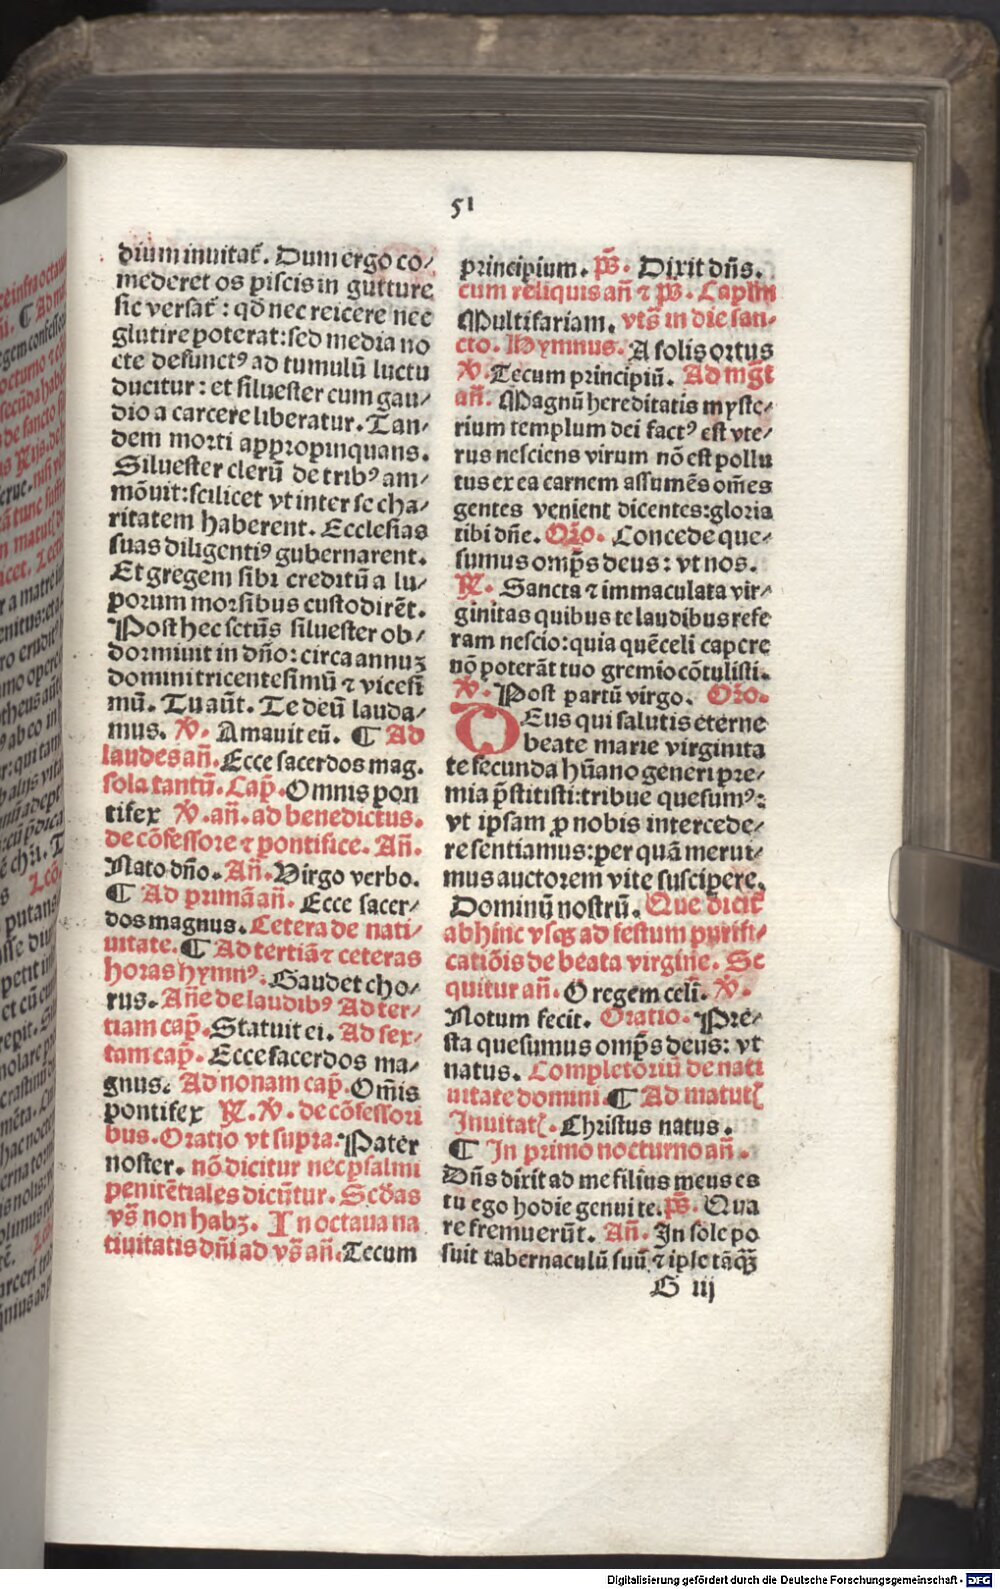 51
diuminuitat᷑. Dum ergo co/
mederet os piscis in gutture
sic versat᷑: qd̄ nec reicere nec
glutire poterat: sed media no
cte defunctꝰ ad tumulū luctu
ducitur: et siluester cum gau/
dio a carcere liberatur. Tan/
dem morti appropinquans.
Siluester clerū de tribꝰ am/
mōuit: scilicet vt inter se cha/
ritatem haberent. Ecclesias
suas diligentiꝰ gubernarent.
Et gregem sibi creditū a lu/
porum morsibus custodirēt.
Post hec sctūs siluester ob/
dormiuit in dn̄o: circa annuꝫ
domini tricentesimū ⁊ vicesi
mū. Tu aūt. Te deū lauda/
mus. ℣. Amauit eū. ¶ Ad
laudes an̄. Ecce sacerdos mag.
sola tantū. Cap̄. Omnis pon
tifex ℣. an̄. ad benedictus.
de cōfessore ⁊ pontifice. An̄.
Nato dn̄o. An̄. Virgo verbo.
¶ Ad primā an̄. Ecce sacer/
dos magnus. Cetera de nati/
uitate. ¶ Ad tertiā ⁊ ceteras
horas hymnꝰ. Gaudet cho/
rus. An̄e de laudibꝰ Ad ter/
tiam cap̄. Statuit ei. Ad sex/
tam cap̄. Ecce sacerdos ma/
gnus. Ad nonam cap̄. Om̄is
pontifex ℟. ℣. de cōfessori
bus. Oratio vt supra. Pater
noster. nō dicitur nec psalmi
penitētiales dicūtur. Sc̄das
vs̄ non habꝫ. In octaua na
tiuitatis dn̄i ad vs̄ an̄. Tecum
principium. ps̄. Dixit dn̄s.
cum reliquis an̄ ⁊ ps̄. Caplm̄
Multifariam. vts̄ in die san/
cto. Hymnus. A solis ortus
℣. Tecum principiū. Ad mḡt
an̄. Magnū hereditatis myste/
rium templum dei factꝰ est vte/
rus nesciens virum nō est pollu
tus ex ea carnem assumēs om̄es
gentes venient dicentes: gloria
tibi dn̄e. Or̄o. Concede que/
sumus omp̄s deus: vt nos.
℟. Sancta ⁊ immaculata vir/
ginitas quibus te laudibus refe
ram nescio: quia quē celi capere
nō poterāt tuo gremio cōtulisti.
℣. Post partū virgo. Or̄o.
DEus qui salutis eterne
beate marie virginita
te fecunda hūano generi pre/
mia p̄stitisti: tribue quesumꝰ:
vt ipsam ꝓ nobis intercede/
re sentiamus: per quā merui/
mus auctorem vite suscipere.
Dominū nostrū. Que dicit᷑
abhinc vsqꝫ ad festum purifi/
catiōis de beata virgine. Se
quitur an̄. O regem celi. ℣.
Notum fecit. Oratio. Pre/
sta quesumus omp̄s deus: vt
natus. Completoriū de nati
uitate domini. ¶ Ad matutꝭ
Inuitatꝭ. Christus natus.
¶ In primo nocturno an̄.
Dn̄s dixit ad me filius meus es
tu ego hodie genui te. ps̄. Qua
re fremuerūt. An̄. In sole po
suit tabernaculū suū ⁊ ipse tāqꝫ̄
G iij
Digitalisierung gefördert durch die Deutsche Forschungsgemeinschaft - DFG